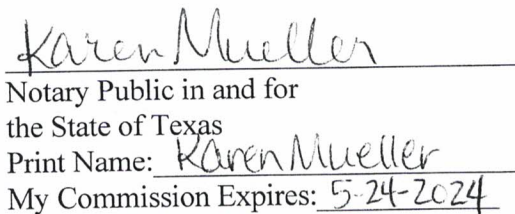 Karen Mueller
Notary Public in and for
the State of Texas
Print Name: Karen Mueller
My Commission Expires: 5-24-2024